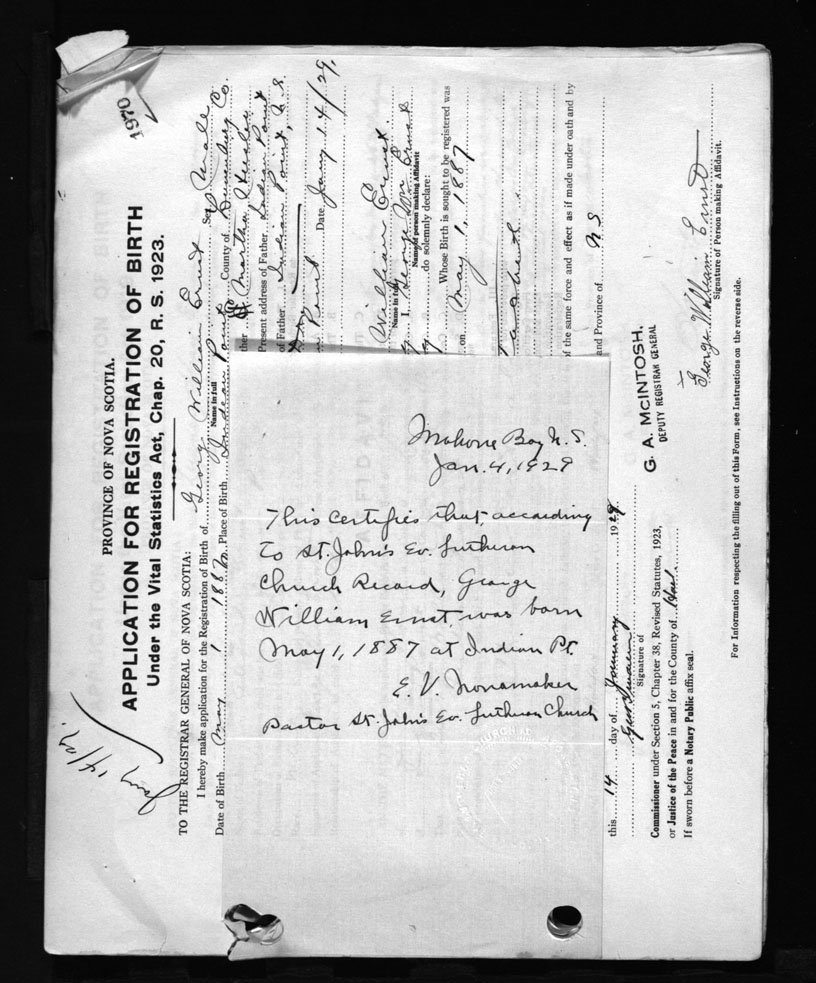 1970
PROVINCE OF NOVA SCOTIA.
APPLICATION FOR REGISTRATION OF BIRTH
Under the Vital Statistics Act, Chap. 20, R. S. 1923.
Jany 14/29.
TO THE REGISTRAR GENERAL OF NOVA SCOTIA:
I hereby make application for the Registration of Birth of George William Ernst Sex Male
Name in full
Date of Birth May 1 1887 Place of Birth Indian Point County of Lunenburg Co.
ther Martha
Present address of Father Indian Point
of Father Indian Point, N. S.
Date Jany 14/29.
William Ernst.
Name in full
I, George Wm Ernst
Name of person making Affidavit
do solemnly declare:
Whose Birth is sought to be registered was
on May 1, 1887
of the same force and effect as if made under oath and by
and Province of N S
Mahone Bay N. S.
Jan. 4, 1929
This certifies that, according
to St. John's Ev. Lutheran
Church Record, George
William Ernst was born
May 1, 1887 at Indian Pt.
E. V. Nonamaker
Pastor St. John's Ev. Lutheran Church
this 14 day of January 1929
Signature of
G. A. McINTOSH,
DEPUTY REGISTRAR GENERAL
Commissioner under Section 5, Chapter 38, Revised Statutes, 1923,
or Justice of the Peace in and for the County of
If sworn before a Notary Public affix seal.
George William Ernst
Signature of Person making Affidavit.
For Information respecting the filling out of this Form, see Instructions on the reverse side.